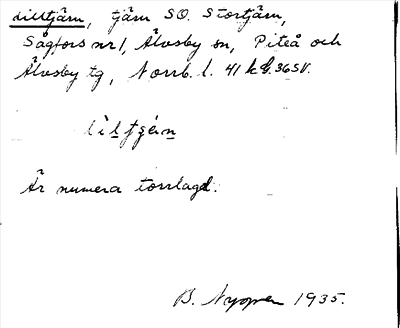 Lilltjärn, tjärn SO. Stortjärn,
Sågfors nr 1, Älvsby sn, Piteå och
Älvsby tg, Norrb. l. 41 k G. 36 SV.
Är numera torrlagd.
B. Nygren 1935.